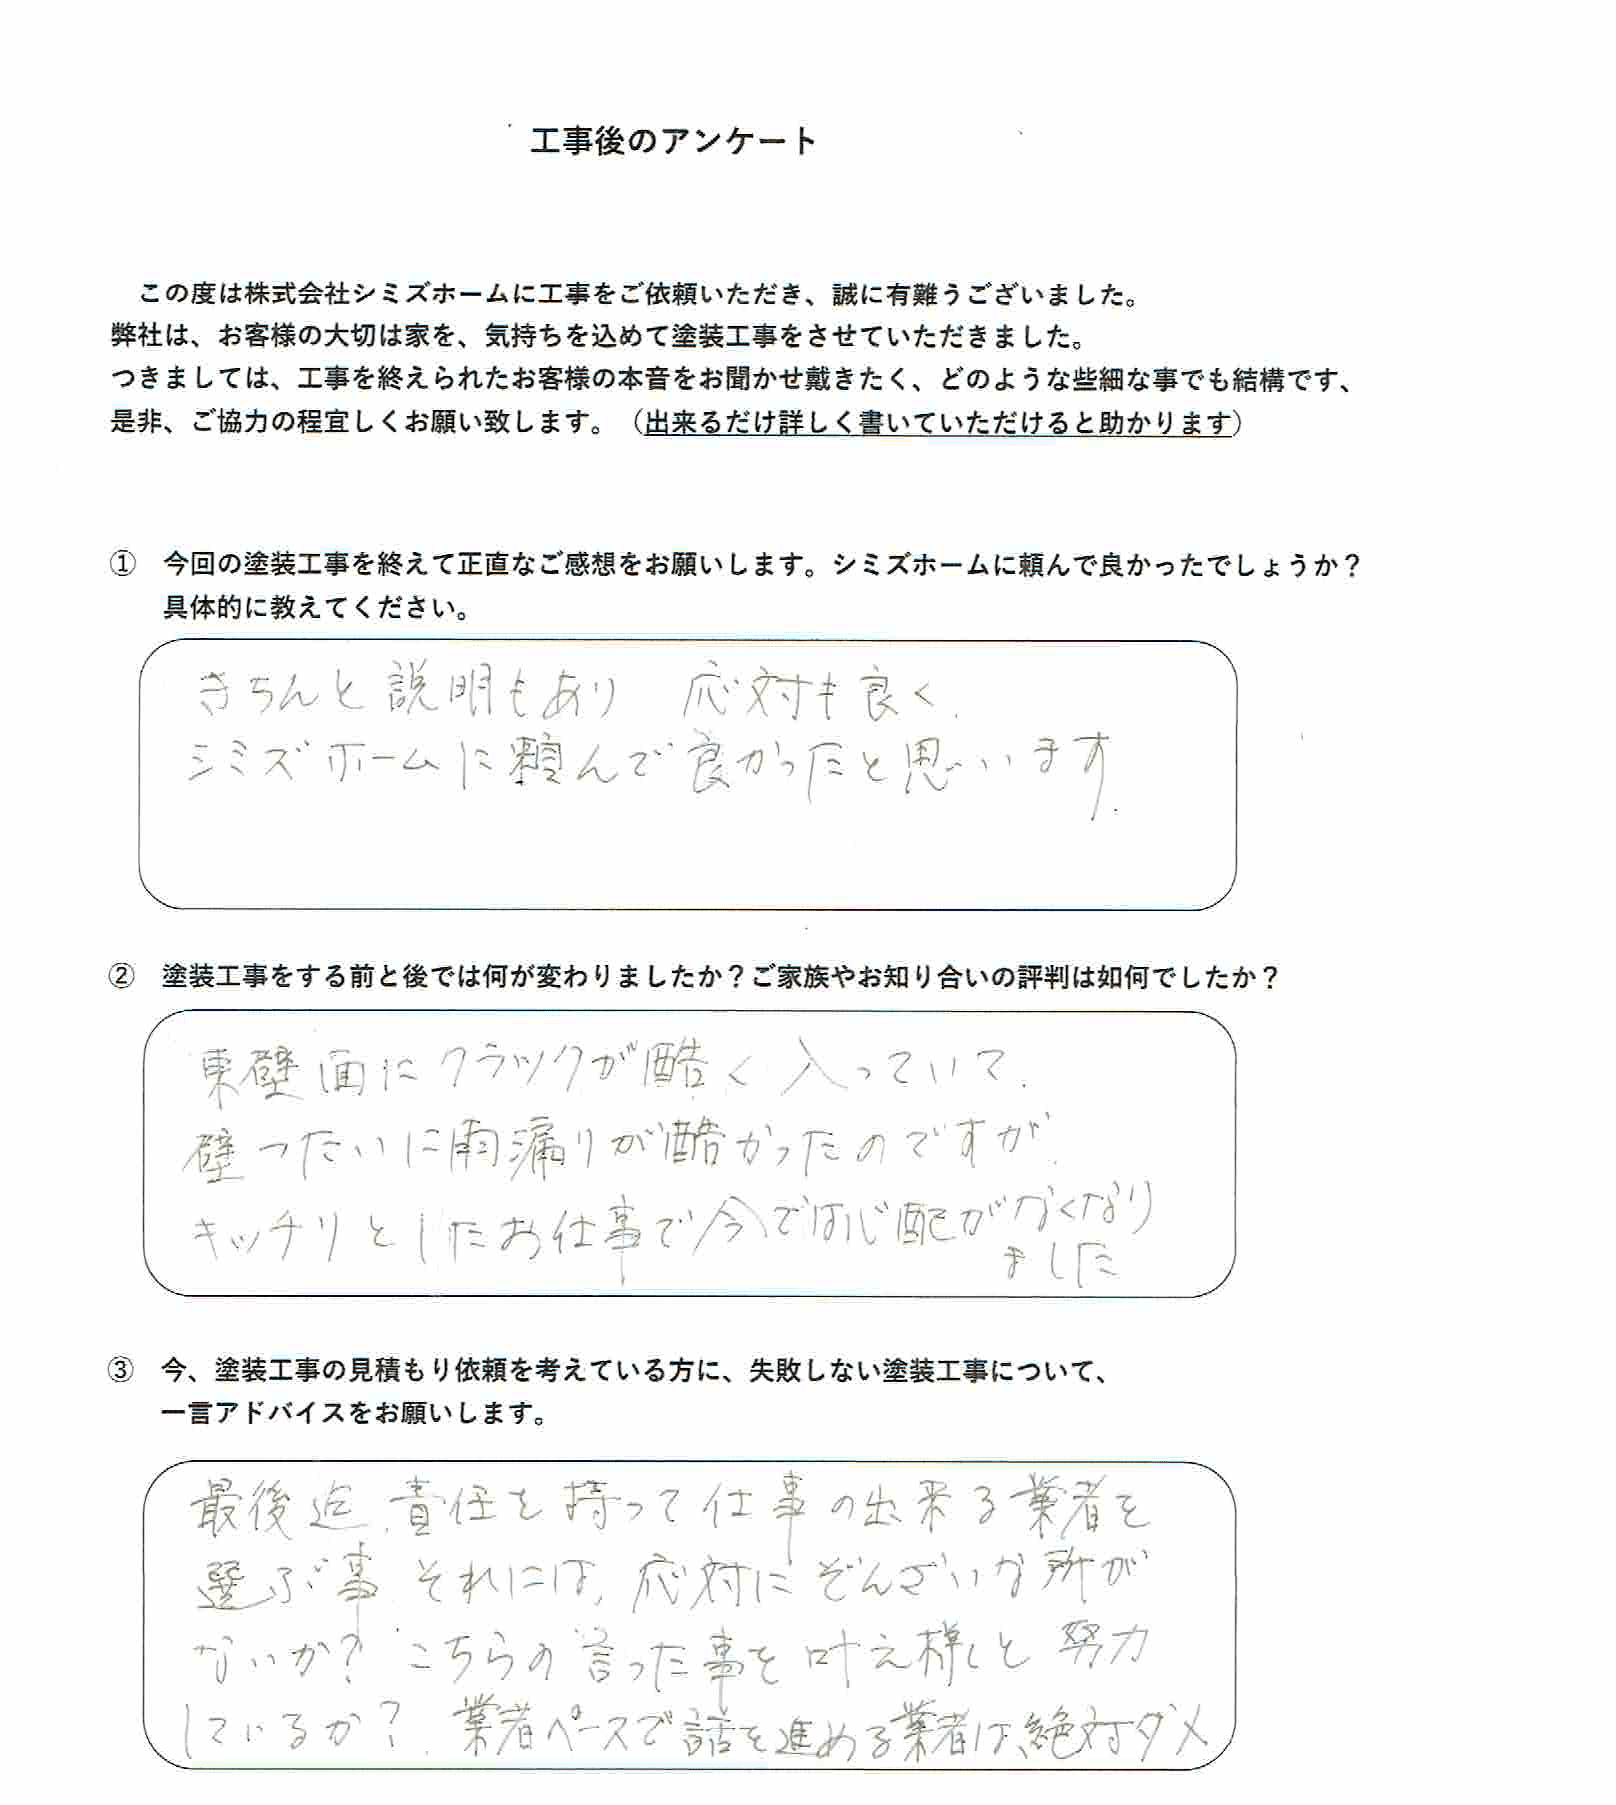 工事後のアンケート
この度は株式会社シミズホームに工事をご依頼いただき、誠に有難うございました。
弊社は、お客様の大切は家を、気持ちを込めて塗装工事をさせていただきました。
つきましては、工事を終えられたお客様の本音をお聞かせ戴きたく、どのような些細な事でも結構です、
是非、ご協力の程宜しくお願い致します。（出来るだけ詳しく書いていただけると助かります）
① 今回の塗装工事を終えて正直なご感想をお願いします。シミズホームに頼んで良かったでしょうか？
具体的に教えてください。
きちんと説明もあり 応対も良く、
シミズホームに頼んで良かったと思います.
② 塗装工事をする前と後では何が変わりましたか？ご家族やお知り合いの評判は如何でしたか？
東壁面にクラックが酷く入っていて、
壁つたいに雨漏りが酷かったのですが、
キッチリとしたお仕事で今では心配がなくなり
ました
③ 今、塗装工事の見積もり依頼を考えている方に、失敗しない塗装工事について、
一言アドバイスをお願いします。
最後迄、責任を持って仕事の出来る業者を
選ぶ事、それには、応対にぞんざいな所が
ないか？こちらの言った事を叶え様しと努力
しているか？、業者ペースで話を進める業者は、絶対ダメ